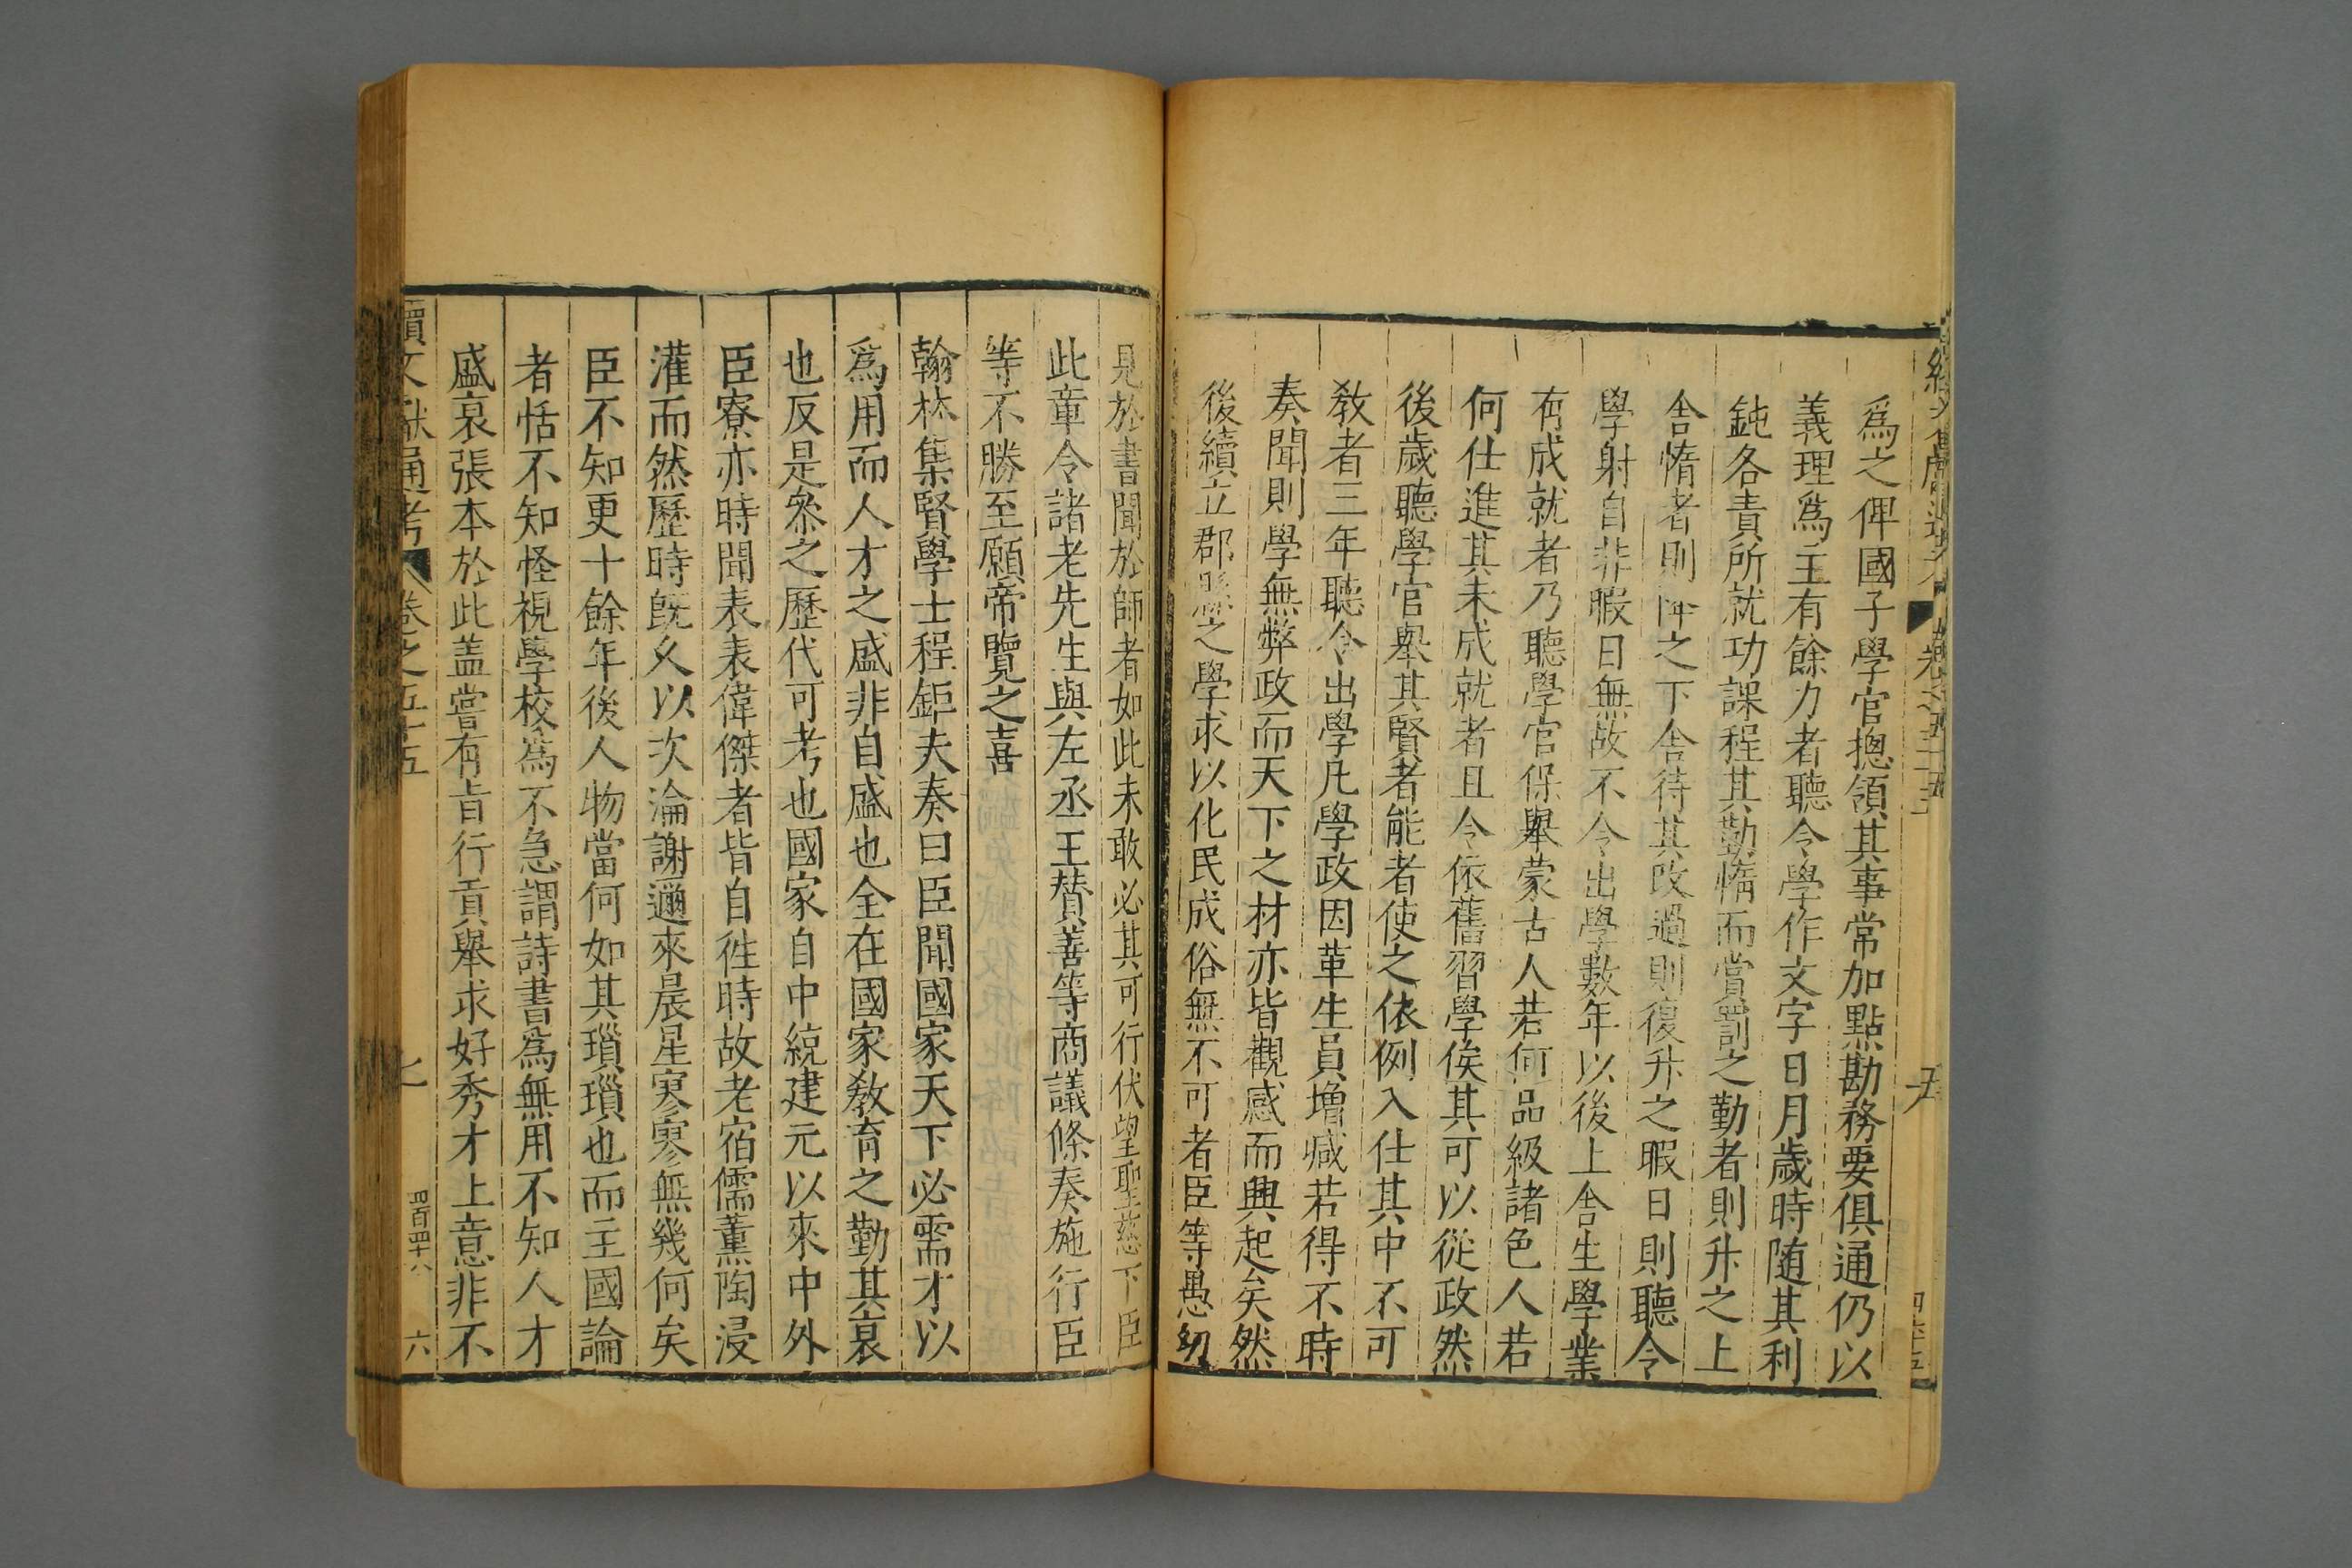 爲之俾國子學官摠領其事常加點勘務要俱通仍以
義理爲主有餘力者聽令學作文字日月歲時随其利
鈍各責所就功課程其勤惰而賞罰之勤者則升之上
舍惰者則降之下舍待其改過則復升之暇日則聽令
學射自非暇日無故不令出學數年以後上舍生學業
有成就者乃聽學官保舉蒙古人若何品級諸色人若
何仕進其未成就者且令依舊習學俟其可以從政然
後歲聽學官舉其賢者能者使之依例入仕其中不可
敎者三年聽令出學凡學政因革生員增減若得不時
奏聞則學無弊政而天下之材亦皆觀感而興起矣然
後續立郡縣之學求以化民成俗無不可者臣等愚幼
見於書聞於師者如此未敢必其可行伏望聖慈下臣
此章令諸老先生與左丞王賛善等商議條奏施行臣
等不勝至願帝覽之喜
翰林集賢學士程鉅夫奏曰臣聞國家天下必需才以
爲用而人才之盛非自盛也全在國家敎育之勤其衰
也反是叅之歷代可考也國家自中綂建元以來中外
臣寮亦時聞表表偉傑者皆自徃時故老宿儒薫陶浸
灌而然歷時旣久以次淪謝邇來晨星寥寥無幾何矣
臣不知更十餘年後人物當何如其瑣瑣也而主國論
者恬不知怪視學校爲不急謂詩書爲無用不知人才
盛衰張本於此盖嘗有旨行貢舉求好秀才上意非不
續文献通考 卷之五十五 六